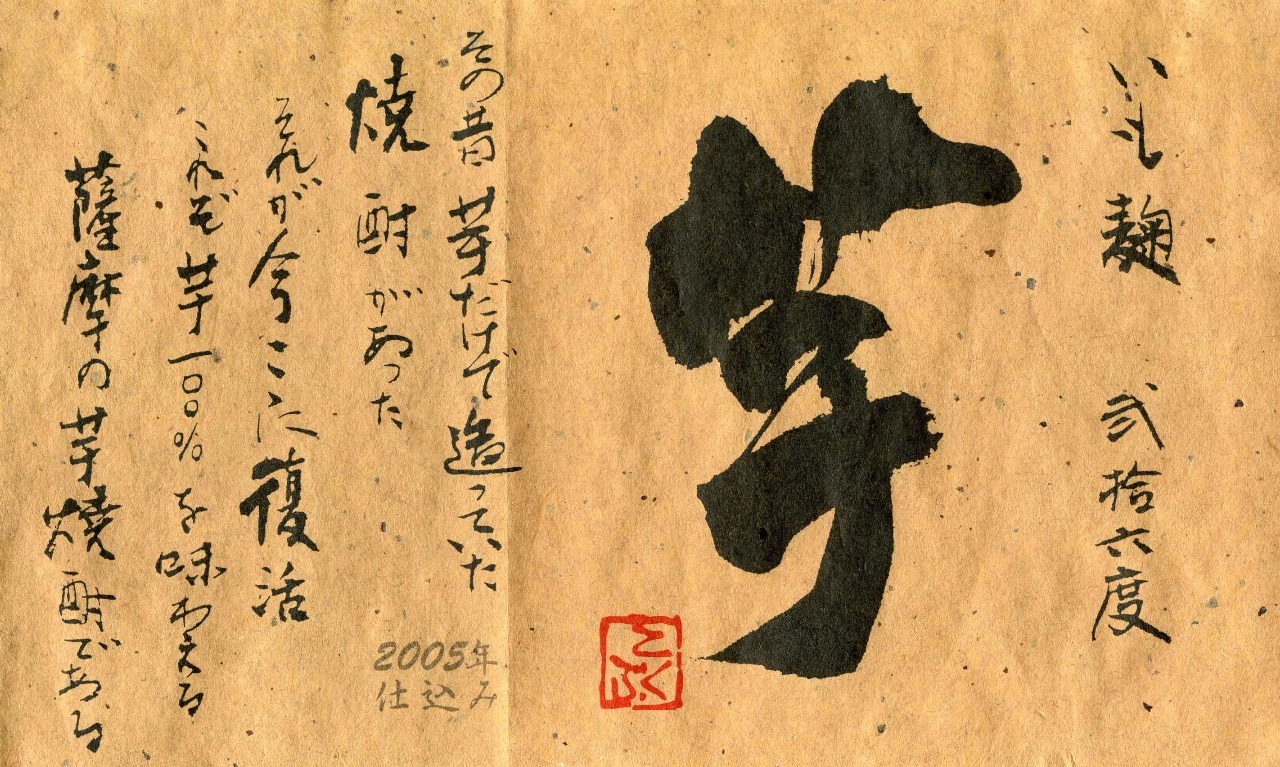 いも麹　弐拾六度
芋
その昔芋だけで造っていた
焼酎があった
それが今ここに復活
これぞ芋一〇〇%を味わえる
薩摩の芋焼酎である
2005年
仕込み